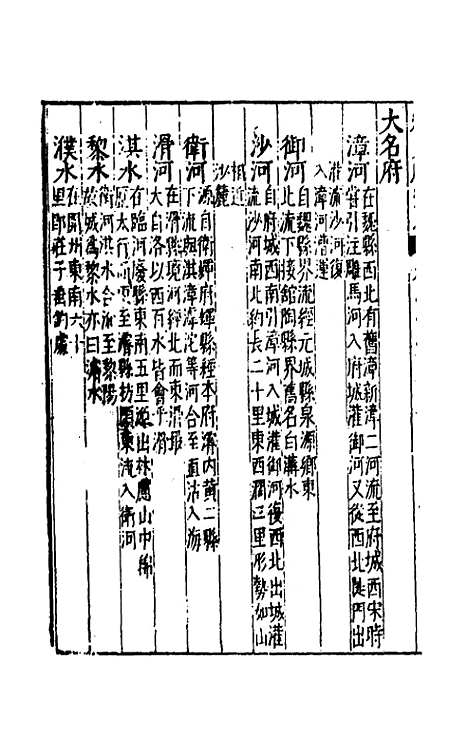 大名府
漳河 在魏縣西北有舊漳新漳二河流至府城西宋時
嘗引注雕馬河入府城灌御河又從西北陡門出
潅流沙河復
入漳河漕運
御河 自魏縣界流經元城縣泉源鄉東
北流下接舘陶縣界舊名白溝水
沙河 自府城西南引漳河入城灌御河復西北出城灌
流沙河南北約長二十里東西濶三里形勢如山
祇近
沙麓
衛河 源自衛輝府輝縣經本府濬内黄二縣
下流與淇漳滹沱等河合至直沽入海
滑河 在滑縣境河經北而東滑最
大自洛以西百水皆會于滑
淇水 在臨河廢縣東南五里源出林慮山中徐
太行而東至濬縣枋頭東流入衛河
黎水 衛河淇水合流至黎陽
故城爲黎水亦曰濬水
濮水 在開州東南六十
里即莊子垂釣處